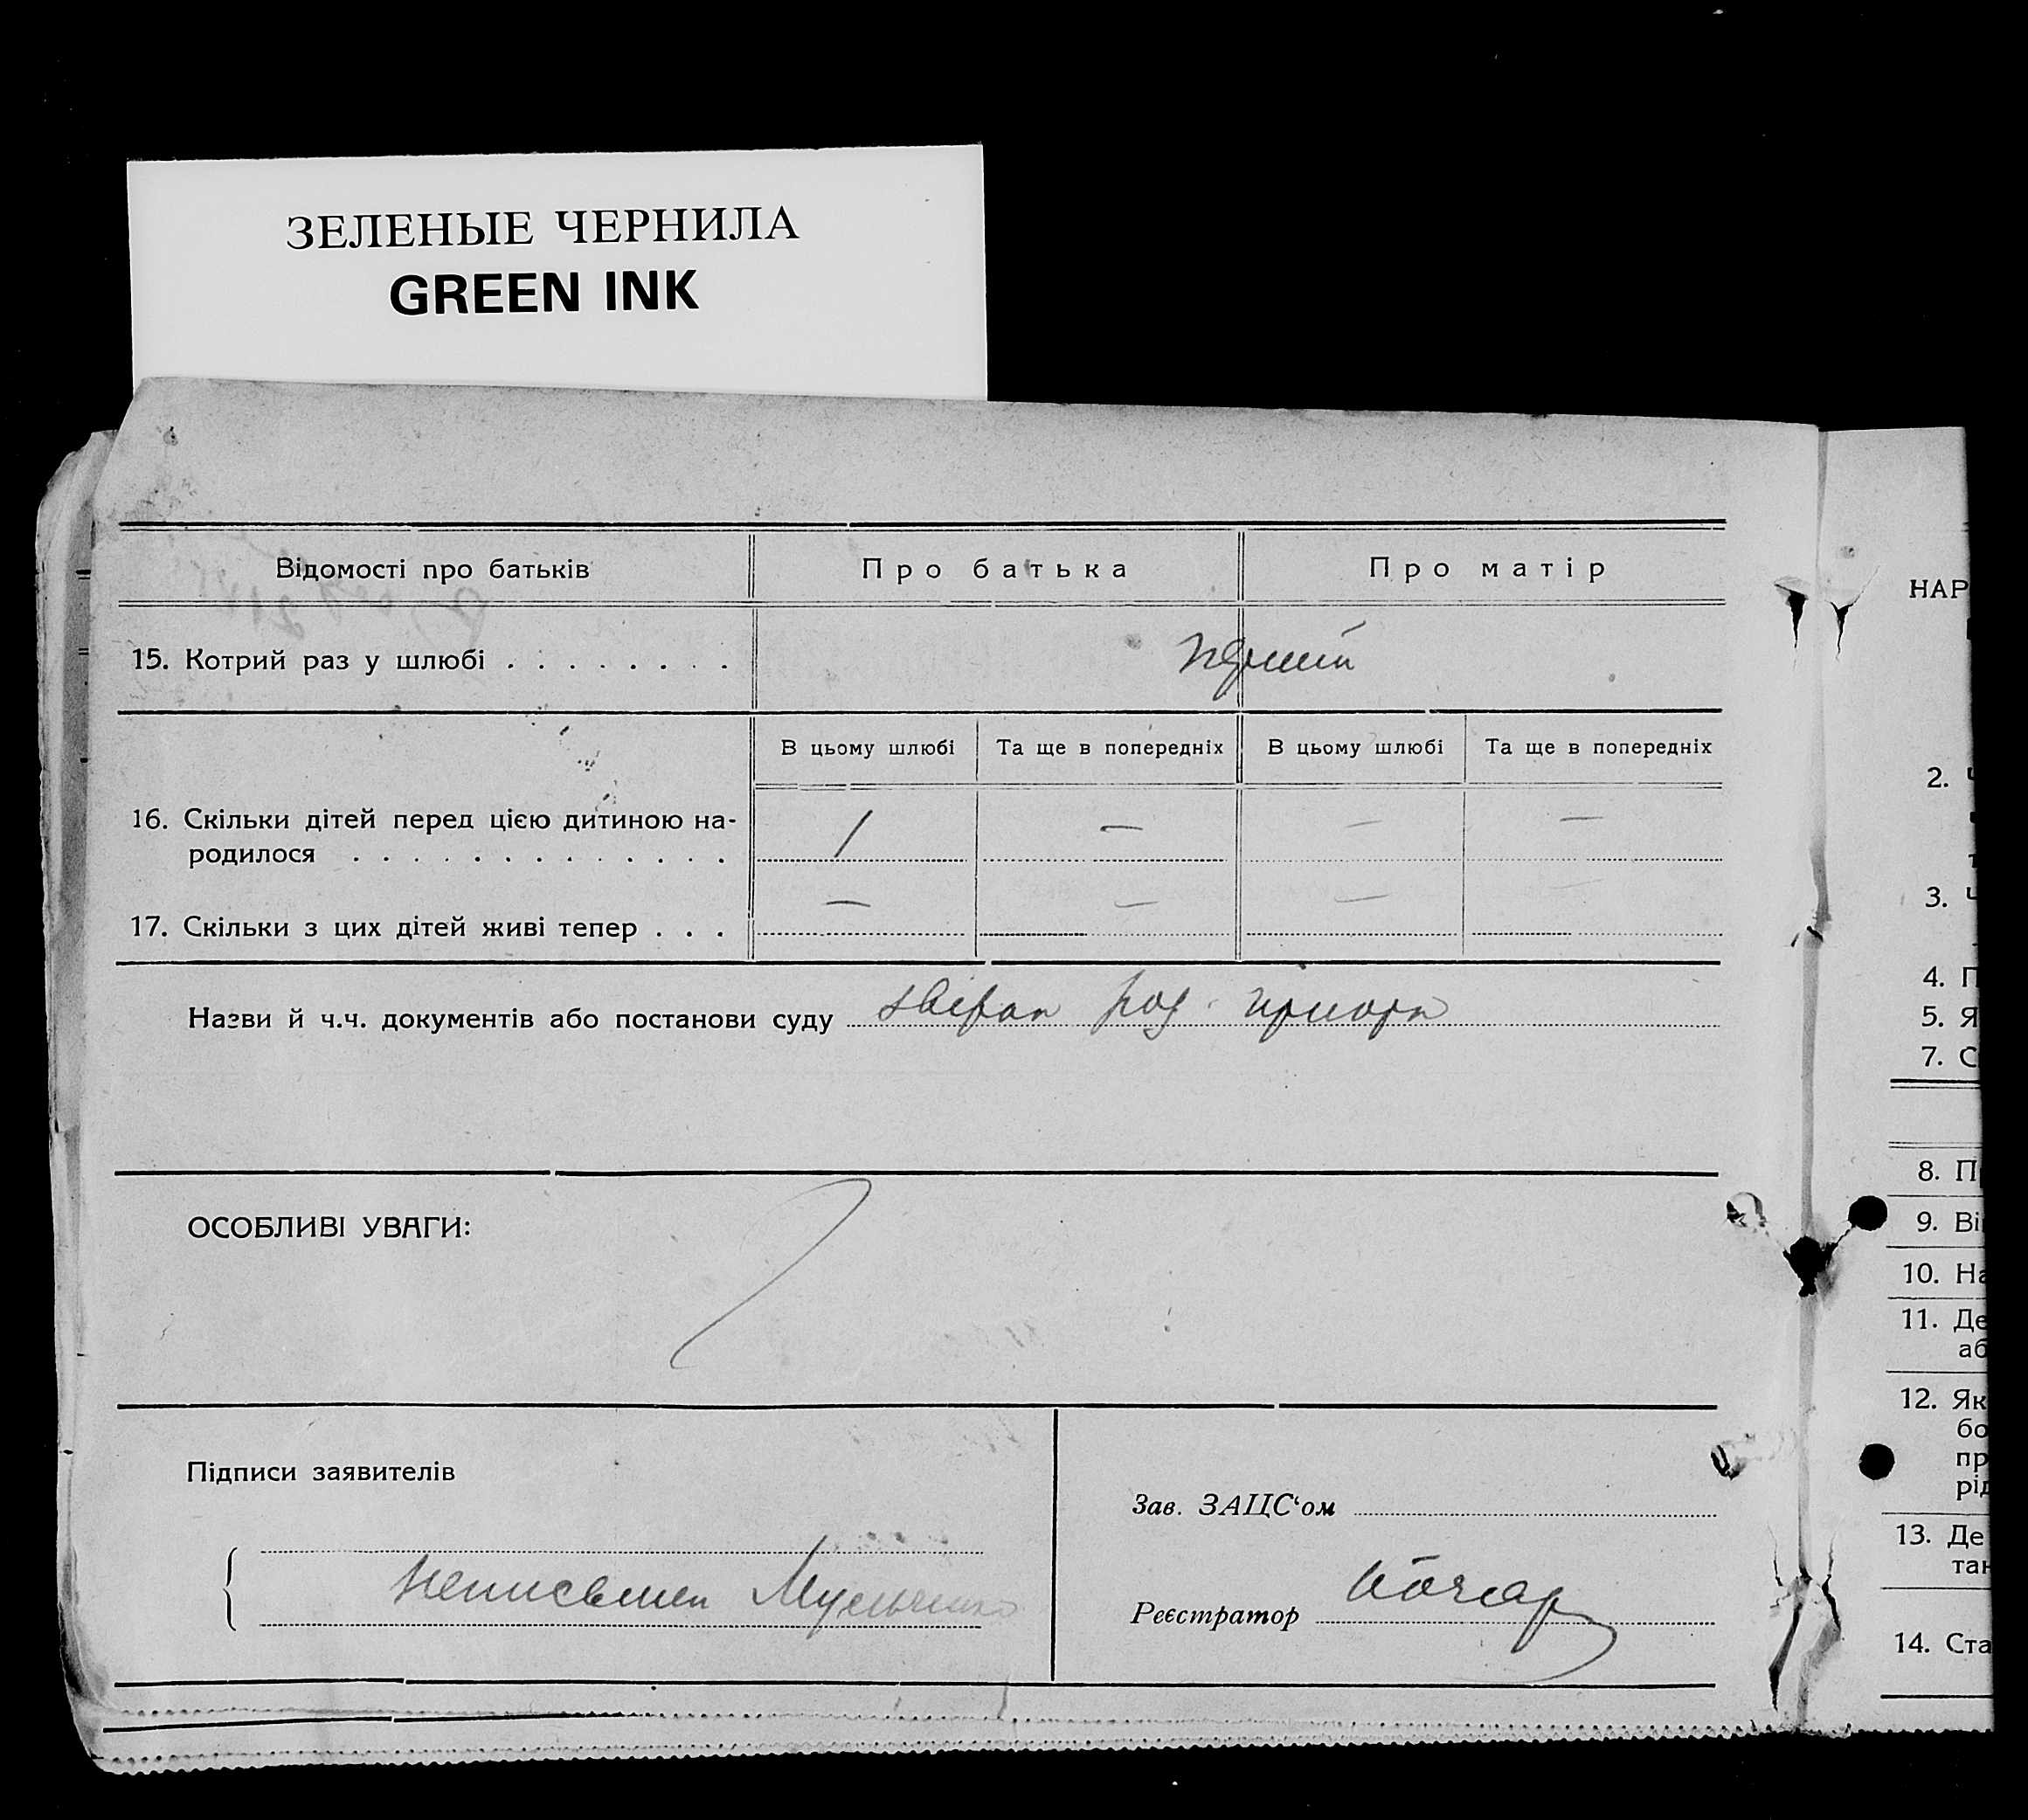 ЗЕЛЕНЫЕ ЧЕРНИЛА
GREEN INK
Відомості про батьків Про батька Про матір
15. Котрий раз у шлюбі . . . . . . . .
В цьому шлюбі Та ще в попередніх В цьому шлюбі Та ще в попередніх
16. Скільки дітей перед цією дитиною на-
родилося . . . . . . . . . . . . . 1 — — —
17. Скільки з цих дітей живі тепер . . . — — — —
Назви й ч.ч. документів або постанови суду
ОСОБЛИВІ УВАГИ:
Підписи заявителів
Зав. ЗАЦС‘ом
Реєстратор
НАР
2. Ч
3. Ч
4. П
5. Я
7. С
8. П
9. Ві
10. На
11. Де
аб
12. Як
бо
пр
рід
13. Де
так
14. Ста